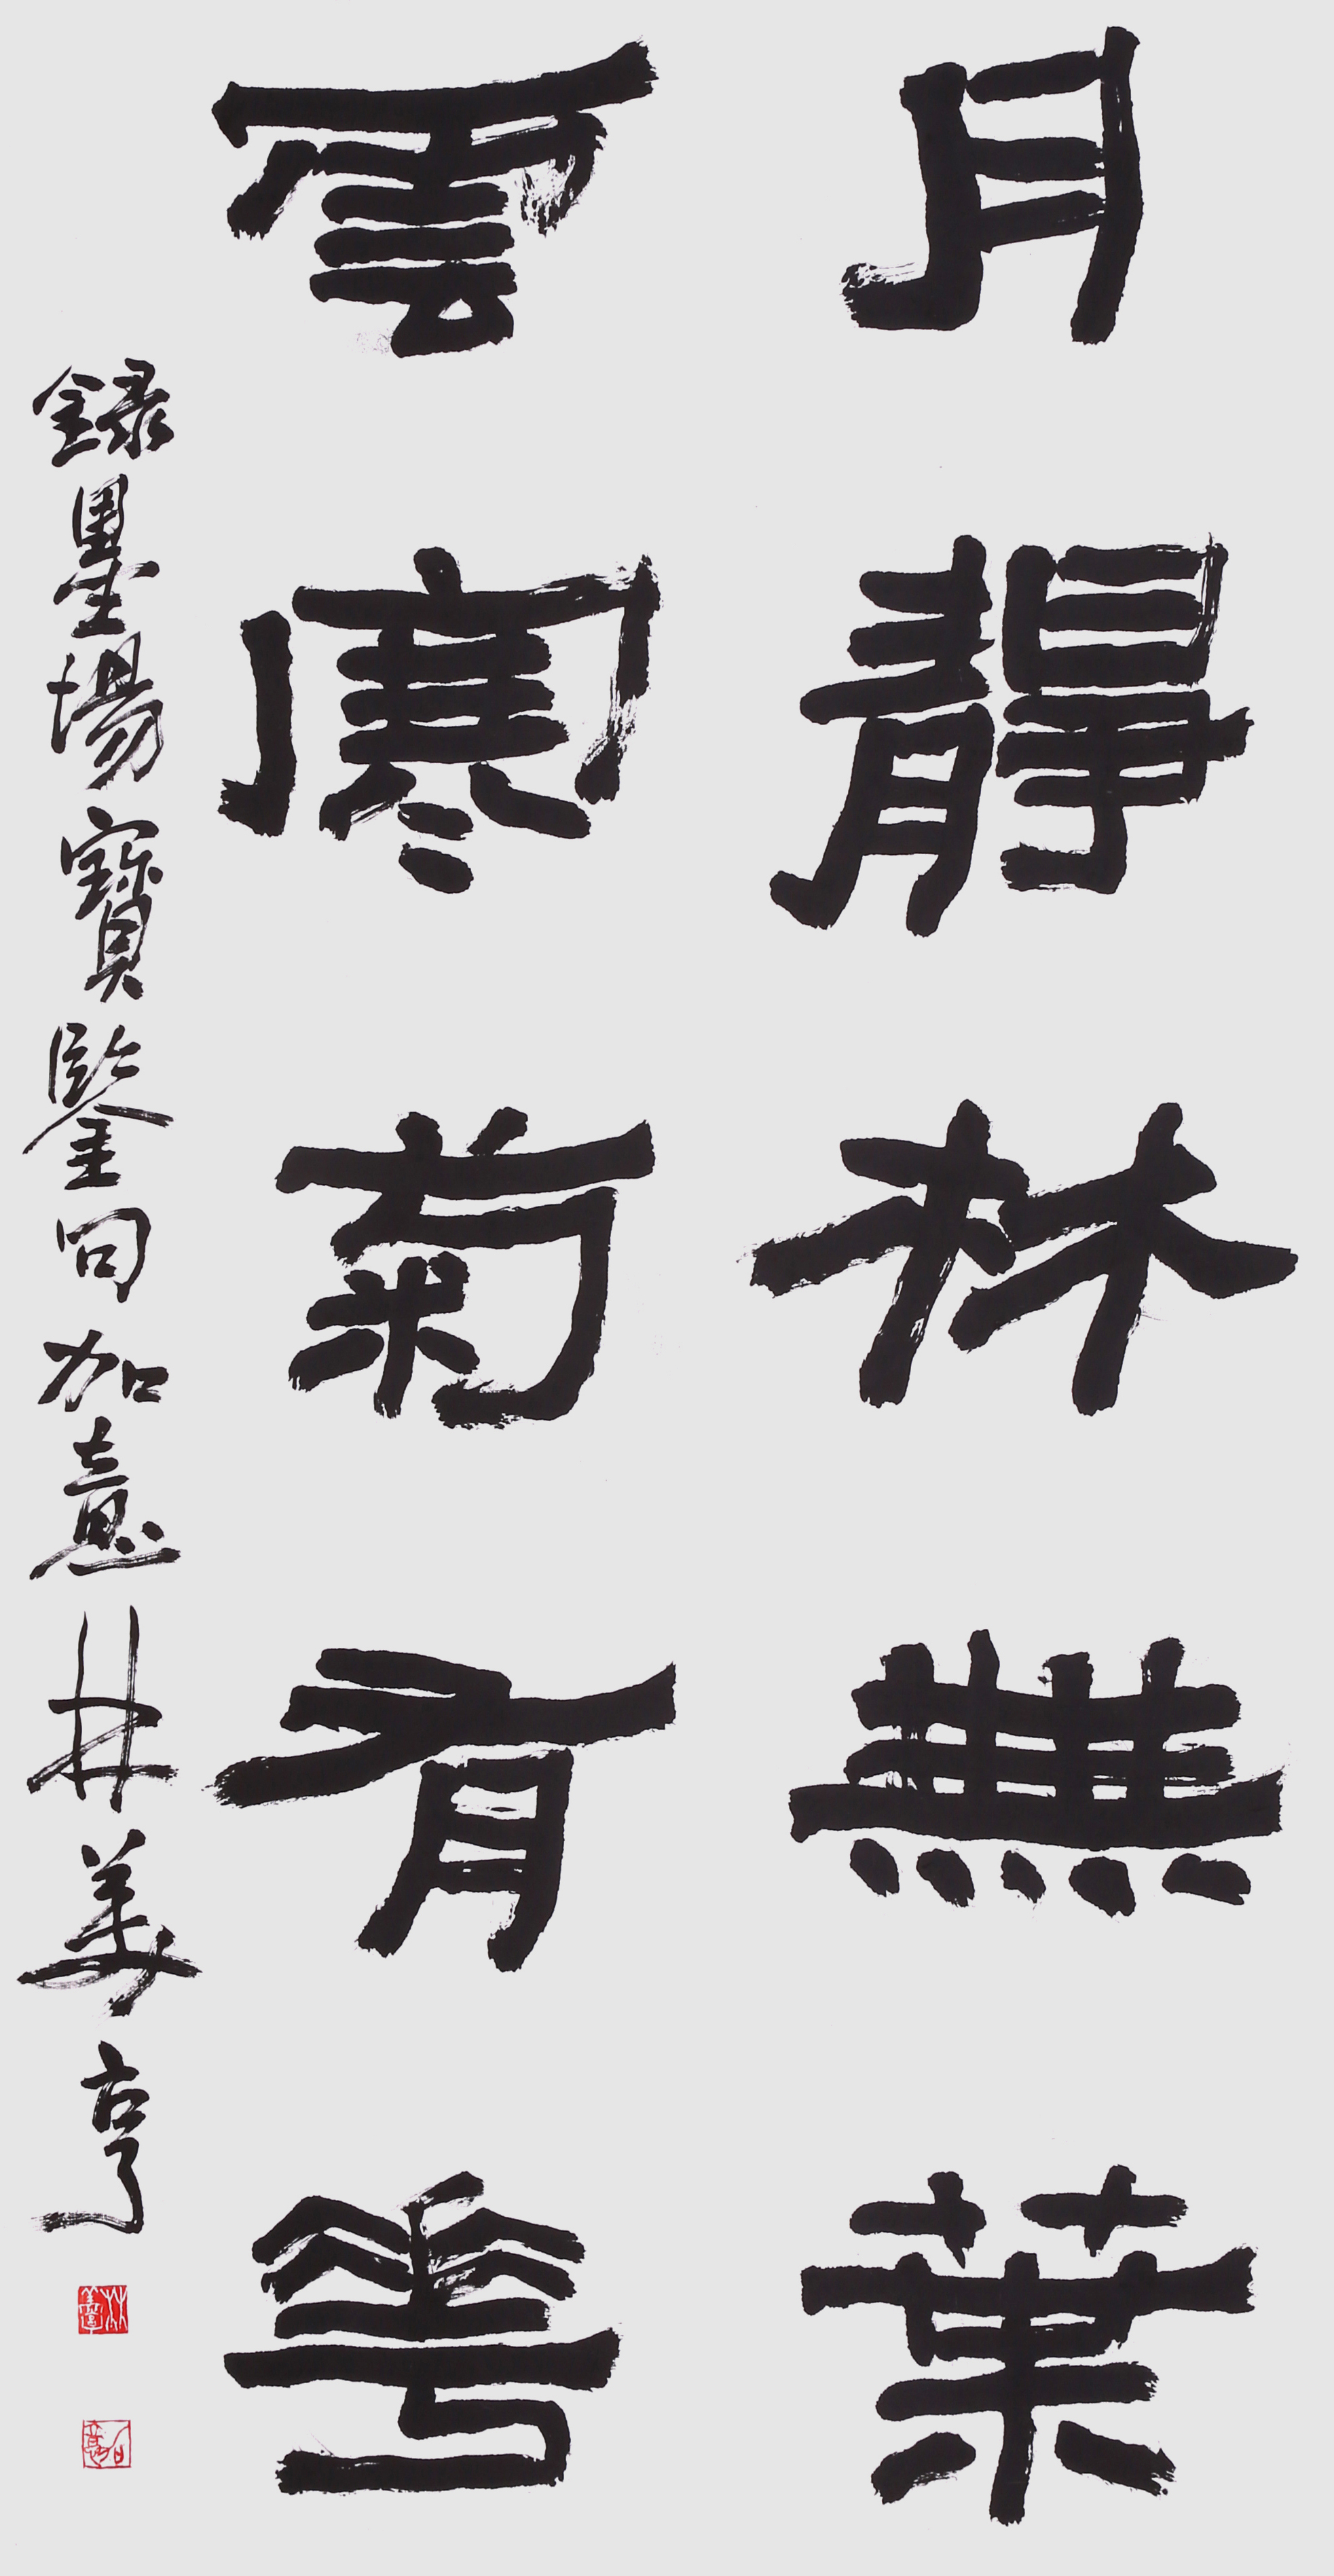 月靜林無葉
雲寒菊有華
録墨場寶鑒句加意林美亨